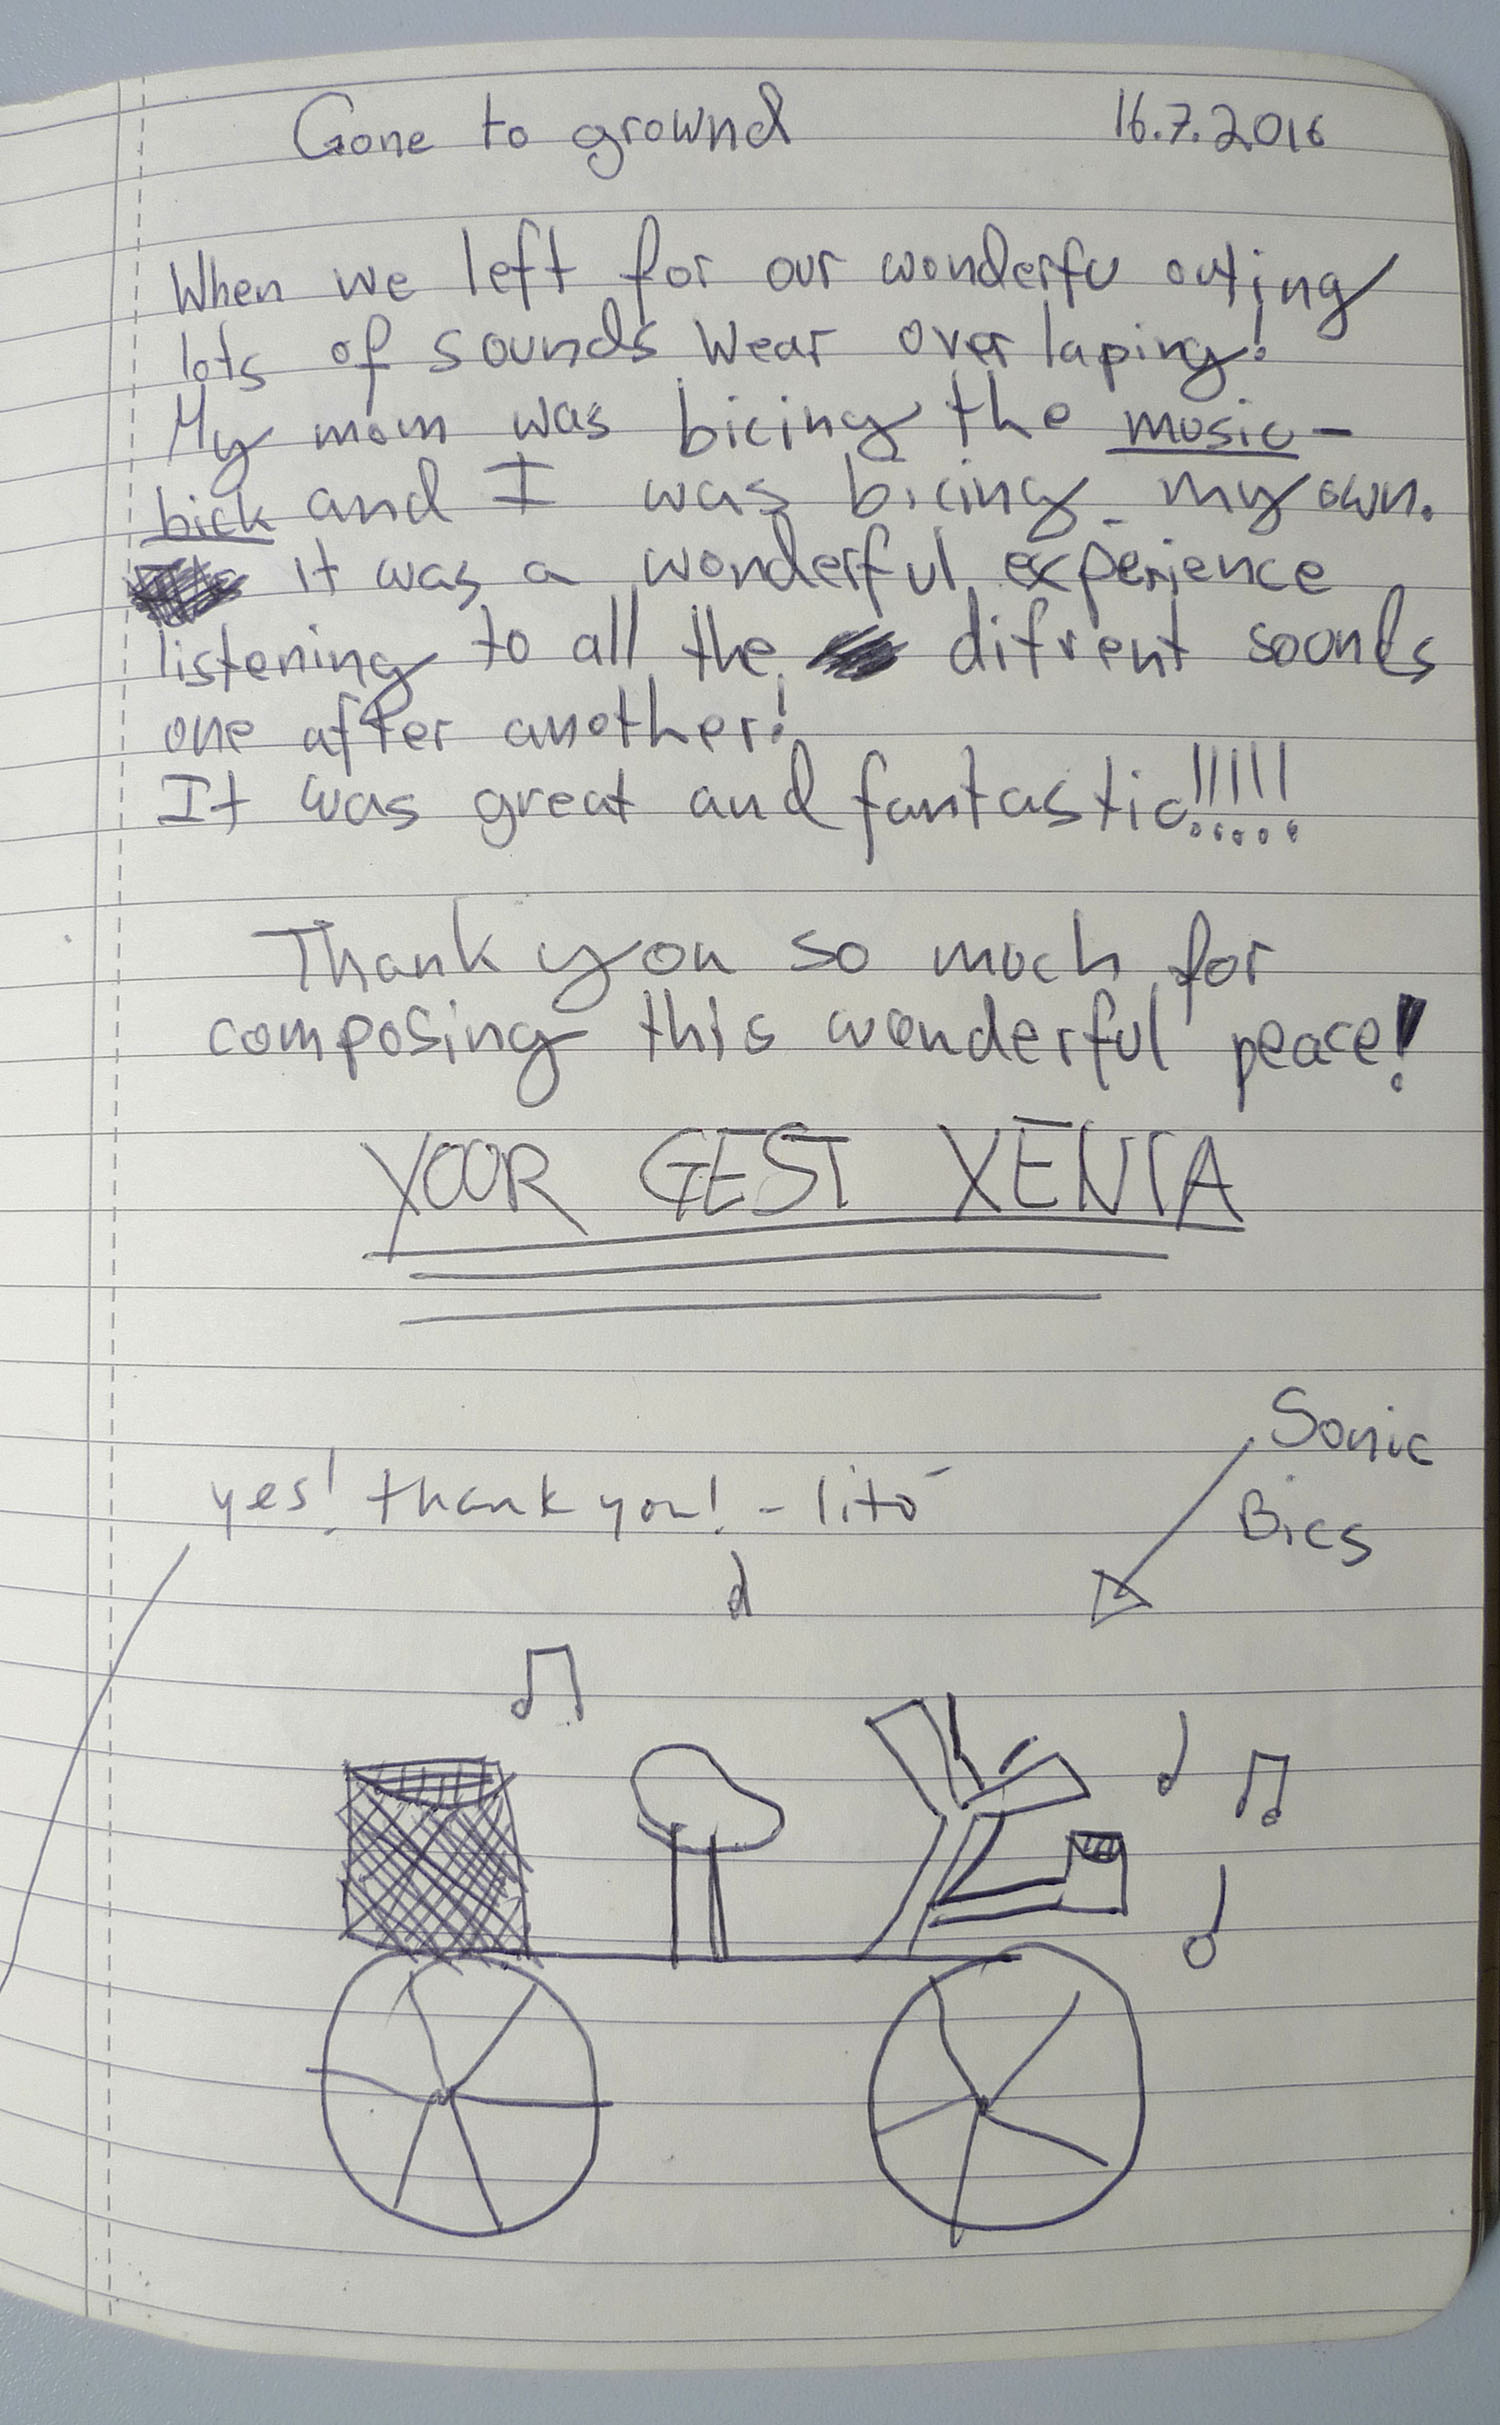 Gone to grownd 16.7.2016
When we left for our wonderfu outing
lots of sounds wear over laping!
My mom was bicing the music-
bick and I was bicing my own.
it was a wonderful experience
listening to all the difrent soonds
one after another!
It was great and fantastic!!!!!
Thank you so much for
composing this wonderful peace!
YOOR GEST XENIA
Sonic
yes! thank you! - lito
Bics